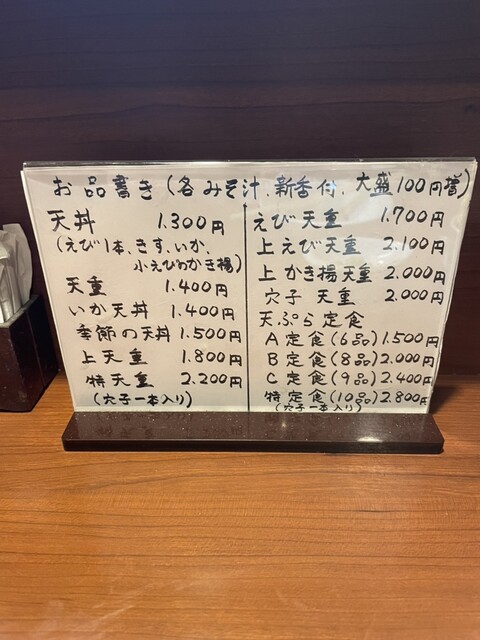 お品書き(各みそ汁、新香付、大盛100円増)
天丼 1.300円
(えび1本、きす、いか、
小えびのかき揚)
天重 1.400円
いか天丼 1.400円
季節の天丼 1.500円
上天重 1.800円
特天重 2.200円
(穴子一本入り)
えび天重 1.700円
上えび天重 2.100円
上かき揚天重 2.000円
穴子天重 2.000円
天ぷら定食
A定食(6品) 1.500円
B定食(8品) 2.000円
C定食(9品) 2.400円
特定食(10品) 2.800円
(穴子一本入り)